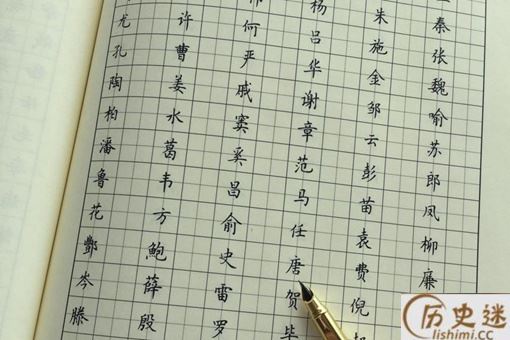 杨朱秦
尤许何吕施张
孔曹严华金魏
陶姜戚谢邹喻
柏水窦章云苏
潘葛奚范彭郎
鲁韦昌马苗凤
花方俞任袁柳
酆鲍史唐费廉
岑薛雷贺倪
滕殷罗毕
历史迷
lishimi.cc